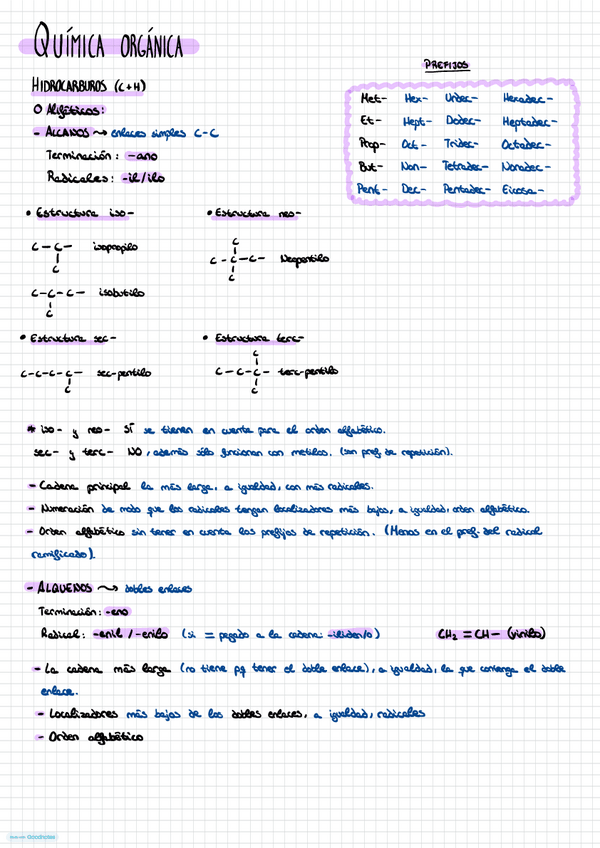 QUÍMICA ORGÁNICA
PREFIJOS
Met- Hex- Undec- Hexadec-
Et- Hept- Dodec- Heptadec-
Prop- Oct- Tridec- Octadec-
But- Non- Tetradec- Nonadec-
Pent- Dec- Pentadec- Eicosa-
HIDROCARBUROS (C+H)
O Alifáticos:
- ALCANOS → enlaces simples C-C
Terminación: -ano
Radicales: -il/ilo
• Estructura iso-
C-C-
C
isopropilo
C-C-C-
C
isobutilo
• Estructura neo-
C
C-C-C-
C
Neopentilo
• Estructura sec-
C-C-C-C-
C
sec-pentilo
• Estructura terc-
C
C-C-C-
C
terc-pentilo
* iso- y neo- SÍ se tienen en cuenta para el orden alfabético.
sec- y terc- NO, además sólo funcionan con metilos. (son pref. de repetición).
- Cadena principal la más larga, a igualdad, con más radicales.
- Numeración de modo que los radicales tengan localizadores más bajos, a igualdad, orden alfabético.
- Orden alfabético sin tener en cuenta los prefijos de repetición. (Menos en el pref. del radical
ramificado).
- ALQUENOS → dobles enlaces
Terminación: -eno
Radical: -enil / -enilo (si = pegado a la cadena: -iliden/o) CH₂ = CH- (vinilo)
- La cadena más larga (no tiene pq tener el doble enlace), a igualdad, la que contenga el doble
enlace.
- Localizadores más bajos de los dobles enlaces, a igualdad, radicales
- Orden alfabético
Goodnotes